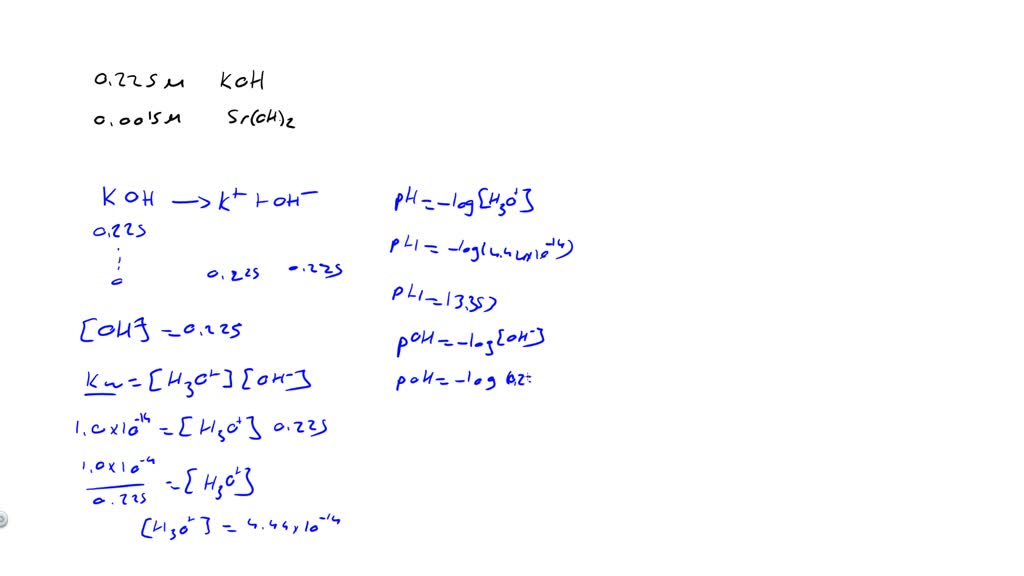 0.225 M KOH
0.0015M Sr(OH)2
KOH → K+ + OH-
0.225
0
0.225 0.225
[OH-] = 0.225
Kw = [H3O+][OH-]
1.0×10-14 = [H3O+] 0.225
1.0×10-4
0.225
= [H3O+]
[H3O+] = 4.44×10-14
pH = -log[H3O+]
pH = -log(4.44×10-14)
pH = 13.353
pOH = -log[OH-]
pOH = -log 0.2